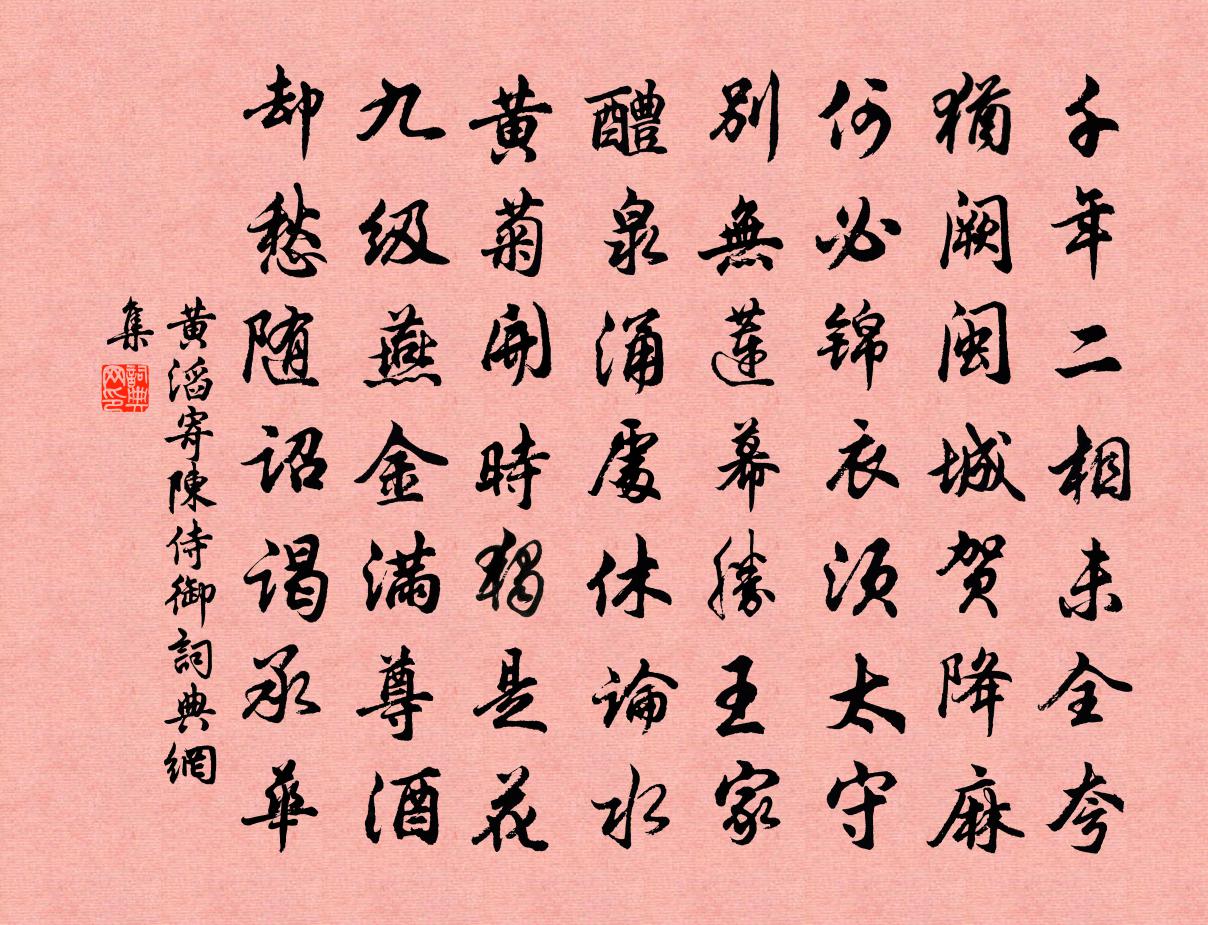 千年二相未全夸
犹阙闽城贺降麻
何必锦衣须太守
别無蓮幕勝王家
醴泉涌處休論水
黄菊開時独是花
九级燕金满尊酒
却愁随诏谒承華
黄滔寄陳侍御詞典網
集
詞典网印